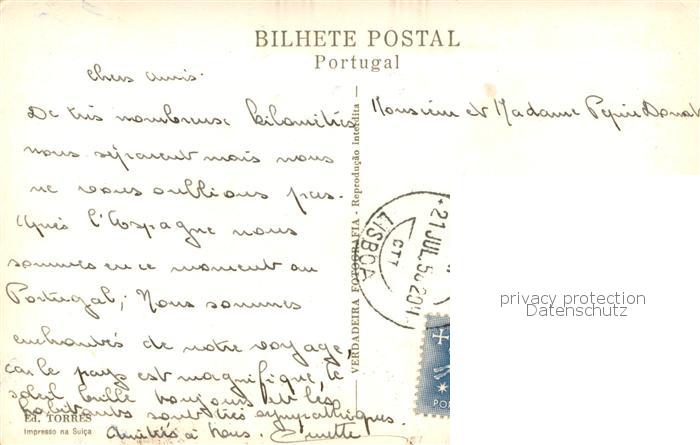 BILHETE POSTAL
Portugal
Chers amis.
De très nombreux kilomètres
nous séparent mais nous
ne vous oublions pas.
Après l'Espagne nous
sommes en ce moment au
Portugal, Nous sommes
enchantés de notre voyage,
car le pays est magnifique, le
soleil brille toujours et les
habitants sont très sympathiques.
Amitiés à tous.
Ed. TORRES
Impresso na Suíça
VERDADEIRA FOTOGRAFIA - Reprodução Interdita
Monsieur et Madame
LISBOA
CTT
21 JUL.
privacy protection
Datenschutz